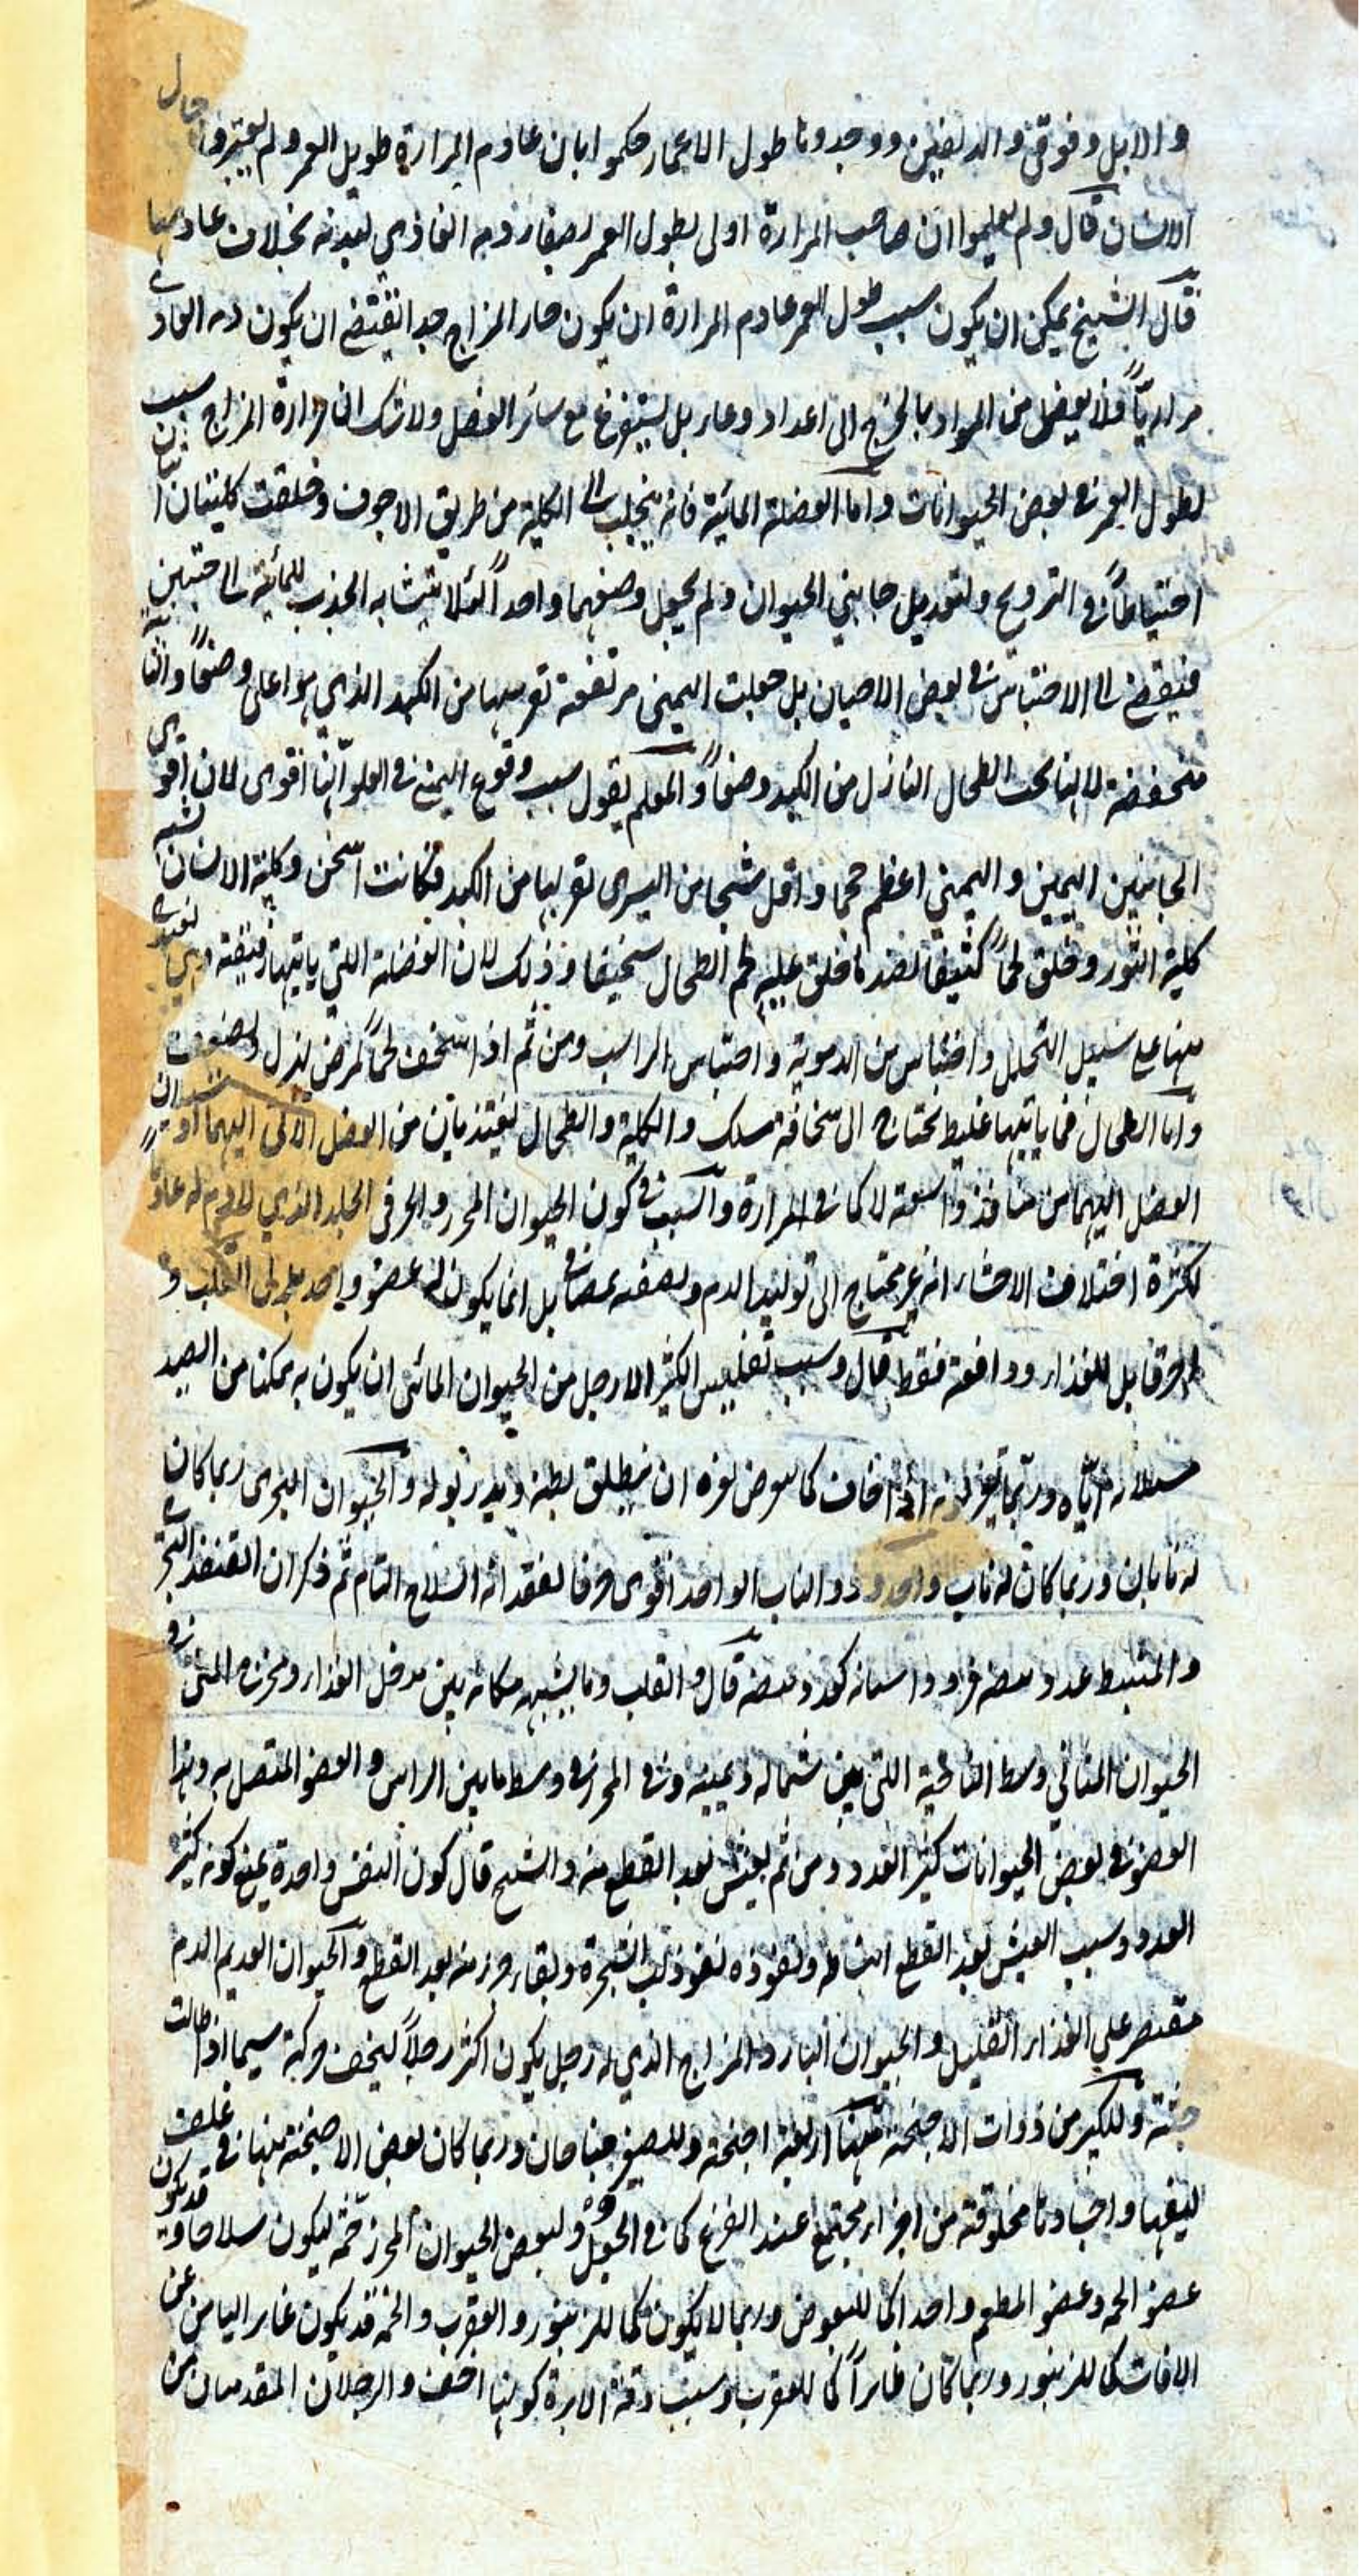 والابل وفوقي والدلفين ووجدوها طول الاعمار حكموا بان عادم المرارة طويل العمر ولم يعتبروا حال
الانسان قال ولم يعلموا ان صاحب المرارة اولى بطول العمر لصفاء دمه الغاذي لبدنه بخلاف عادمها
قال الشيخ يمكن ان يكون سبب طول العمر عادم المرارة ان يكون حار المزاج جدا يقتضي ان يكون دمه الغاذي
مراريّاً فلا يفضل من المواد ما يحوج الى اعداد وعاء بل يستفرغ مع سائر الفضل ولا شك ان حرارة المزاج سبب
لطول العمر في بعض الحيوانات واما الفضلة المائية فانه ينجلب الى الكلية من طريق الاجوف وخلقت كليتان اثنتان
احتياطاً في الترويح ولتعديل جانبي الحيوان ولم يجعل وضعهما واحداً لئلا يتشابه الجذب للمائية الى جنبين
فيفضي الى الاحتباس في بعض الاحيان بل جعلت اليمنى مرتفعة لقربها من الكبد الذي هو اعلى وضعاً والثانية
منخفضة لانها تحت الطحال النازل من الكبد وضعاً والمعلم يقول سبب وقوع اليمنى في العلو انها اقوى لان اقوى
الجانبين اليمين واليمنى اعظم حجما واقل شحما من اليسرى لقربها من الكبد فكانت اسخن وكلية الانسان تشبه
كلية الثور وخلق لحماً كثيفا لضد ما خلق عليه لحم الطحال سخيفا وذلك لان الفضلة التي ياتيها رقيقة وهي تغتذي
منها على سبيل التحليل واحتباس من الدموية واحتباس الراسب ومن ثم اذا اسخف لحماً لمرض يذبل لضعف
واما الطحال فما ياتيها غليظ يحتاج الى سخافة مسلك والكلية والطحال يغتذيان من الفضل الآتي اليهما
الفضل اليهما من منافذ واسعة لا كما في المرارة والسبب في كون الحيوان المحزز والخزفي الجلد الذي لا دم له عادماً
لكثرة اختلاف الاحشاء انه غير محتاج الى توليد الدم وتصفيه بل انما يكون له عضو واحد يجري القلب و
اخر قابل للغذاء ودافعة فقط قال وسبب تفليس اكثر الارجل من الحيوان المائي ان يكون به ممكنا من الصيد
اياه وربما تغير لونه اذا خاف كما يعرض لغيره ان ينطلق بطنه ويدر بوله والحيوان البحري ربما كان
له نابان وربما كان له ناب واحد وذو الناب الواحد اقوى خرفا لفقدانه السلاح التام ثم ذكر ان القنفذ البحري
والمتبسط عدد بيضه فرد واسنانه كعدد بيضه قال والقلب وما يشبهه مكانه بين مدخل الغذاء ومخرجه المني وفي
الحيوان المشائي وسط الناحية التي بين شماله ويمينه وفي المحزز في وسط ما بين الراس والعضو المتصل به وهذا
العضو في بعض الحيوانات كثير العدد ومن ثم يعيش بعد القطع منه والشيخ قال كون النفس واحدة يمنع كونه كثير
العدد وسبب العيش بعد القطع انبساطه ونفوذه نفوذ لب الشجرة وبقاء جزء منه بعد القطع والحيوان العديم الدم
مقتصر على الغذاء القليل والحيوان البارد المزاج الذي له رجل يكون اكثر رجلاً ليخف حركته سيما اذا طالت
جثته وللكبير من ذوات الاجنحة منها اربعة اجنحة وللصغير جناحان وربما كان بعض الاجنحة منها في غلف
ليقيها واجسادها مخلوقة من اجزاء مجتمع عند الفزع كما في الجعل ولبعض الحيوان المحزز حمة ليكون سلاحا وقد يكون
عضو الحمة وعضو المطعم واحدا كما للبعوض وربما لا يكون كما للزنبور والعقرب والحمة قد يكون غائرا ليامن عن
الافات كما للزنبور وربما كان ظاهراً كما للعقرب وسبب دقة الابرة كونها اخف والرجلان المقدمان من